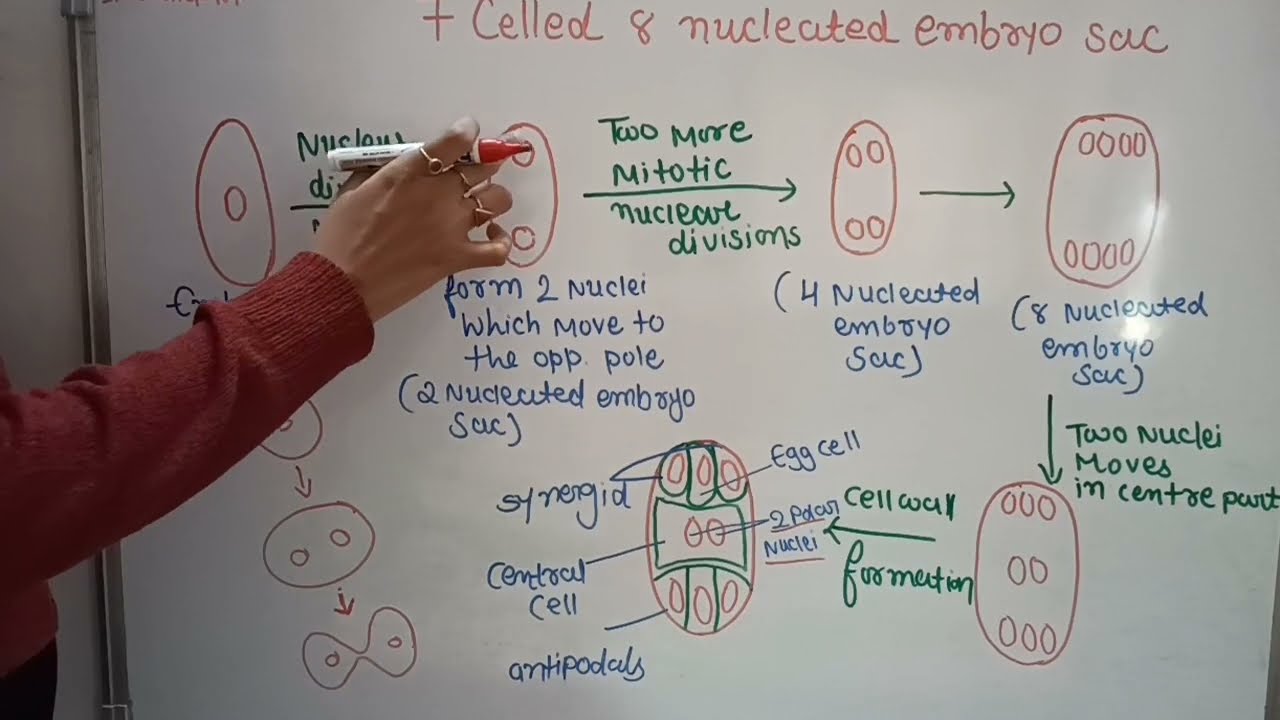 7 Celled 8 nucleated embryo sac
Nucleus
Two More
Mitotic
nucleare
divisions
form 2 Nuclei
which move to
the opp. pole
(2 Nucleated embryo
sac)
(4 Nucleated
embryo
sac)
(8 Nucleated
embryo
sac)
Two Nuclei
Moves
in centre part
Egg cell
synergid
2 Polar
Nuclei
cell wall
formation
central
cell
antipodals